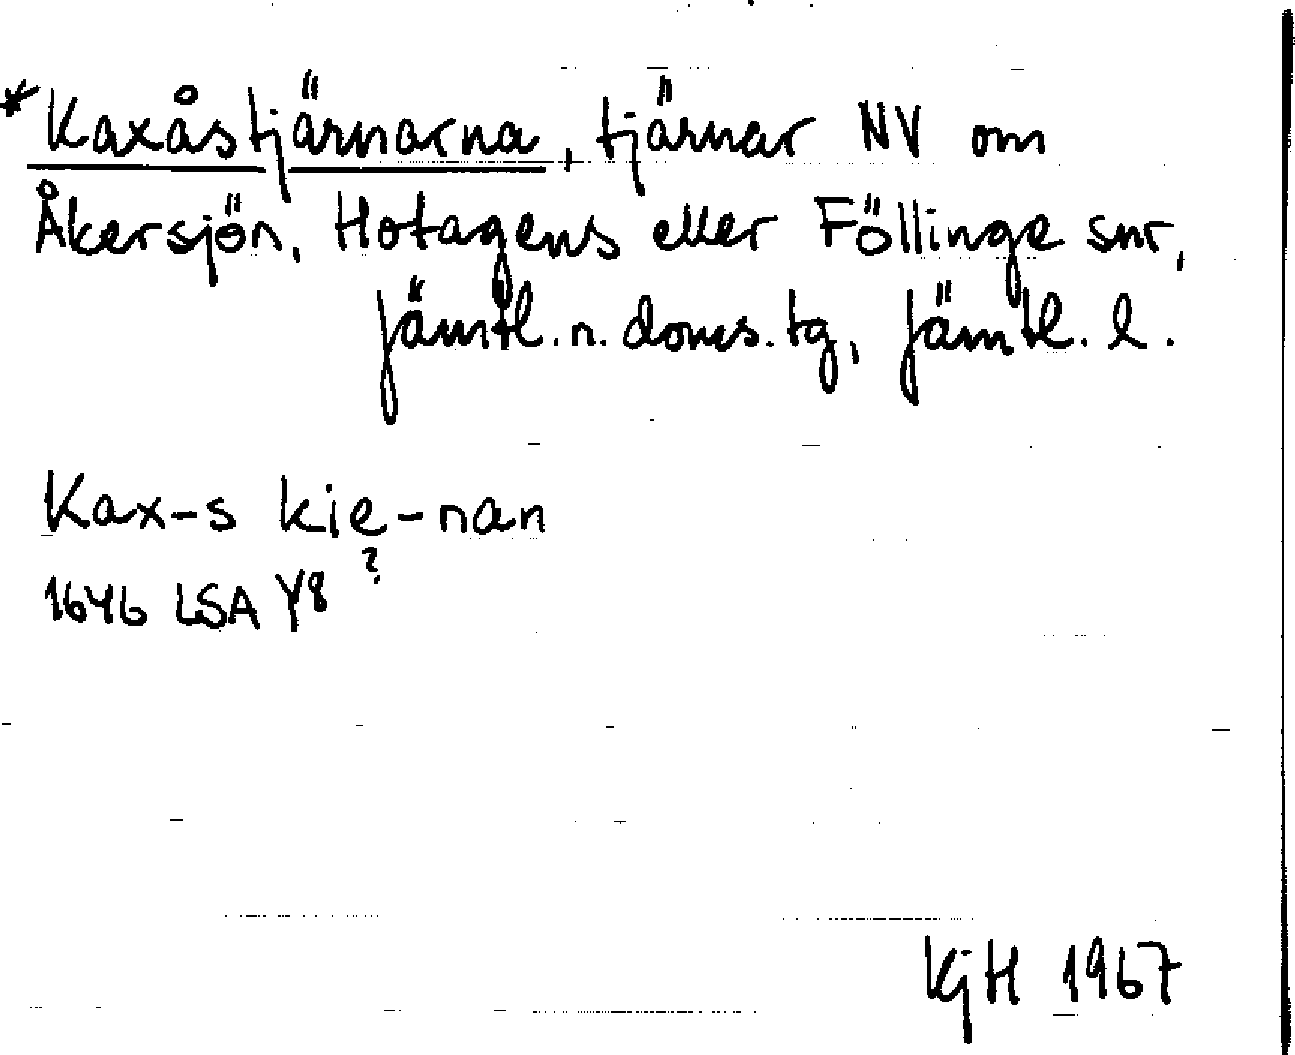 *Kaxåstjärnarna, tjärnar NV om
Åkersjön, Hotagens eller Föllinge snr,
Jämtl. n. doms. tg, Jämtl. l.
Kax-s kie-nan
?
1646 LSA Y8
KjH 1967